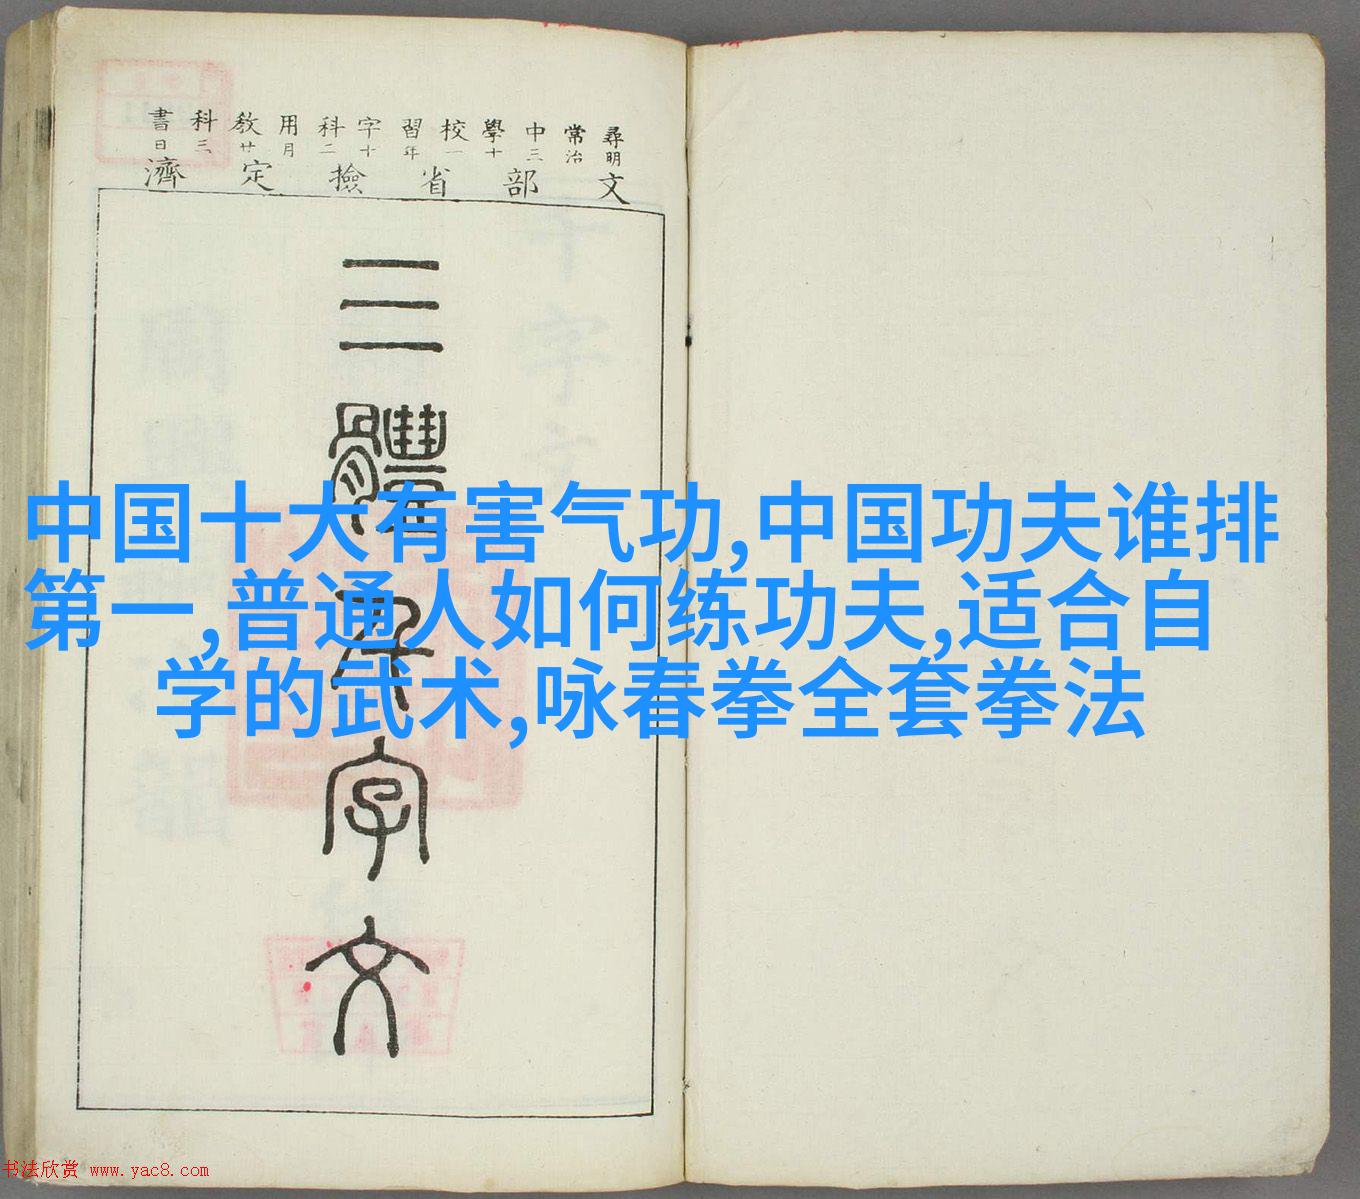 尋常中學校習字科用教科書
明治三十一年十二月廿三日
文部省撿定濟
三體千字文
中国十大有害气功,中国功夫谁排
第一,普通人如何练功夫,适合自
学的武术,咏春拳全套拳法
书法欣赏 www.yac8.com